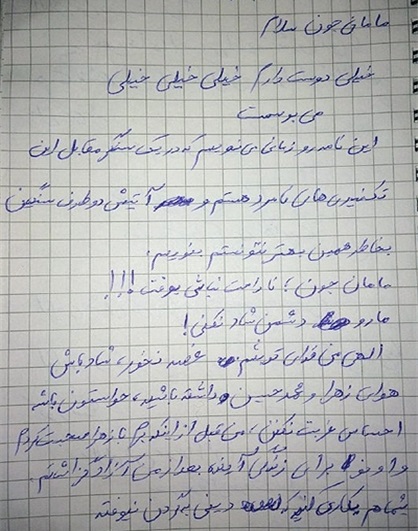 مامان جون سلام
خیلی دوست دارم خیلی خیلی خیلی
می بوسمت
این نامه رو زمانی می نویسم که در یک سنگر مقابل این
تکفیری های نامرد هستم و آتیش دو طرف سنگین
بخاطر همین بهتر نتونستم بنویسم.
مامان جون؛ ناراحت نباشی یوقت!!!
مارو دشمن شاد نکنی!
الهی من فدای تو بشم غصه نخور، شاد باش
هوای زهرا و محمدحسین داشته باشید، حواستون باشه
احساس غربت نکنن، من قبل از اینکه بیام با زهرا صحبت کردم
و اونو برای زندگی آینده بعد از من آزاد گذاشتم.
شما هم یکاری کنید که دینی به گردن نیوفته